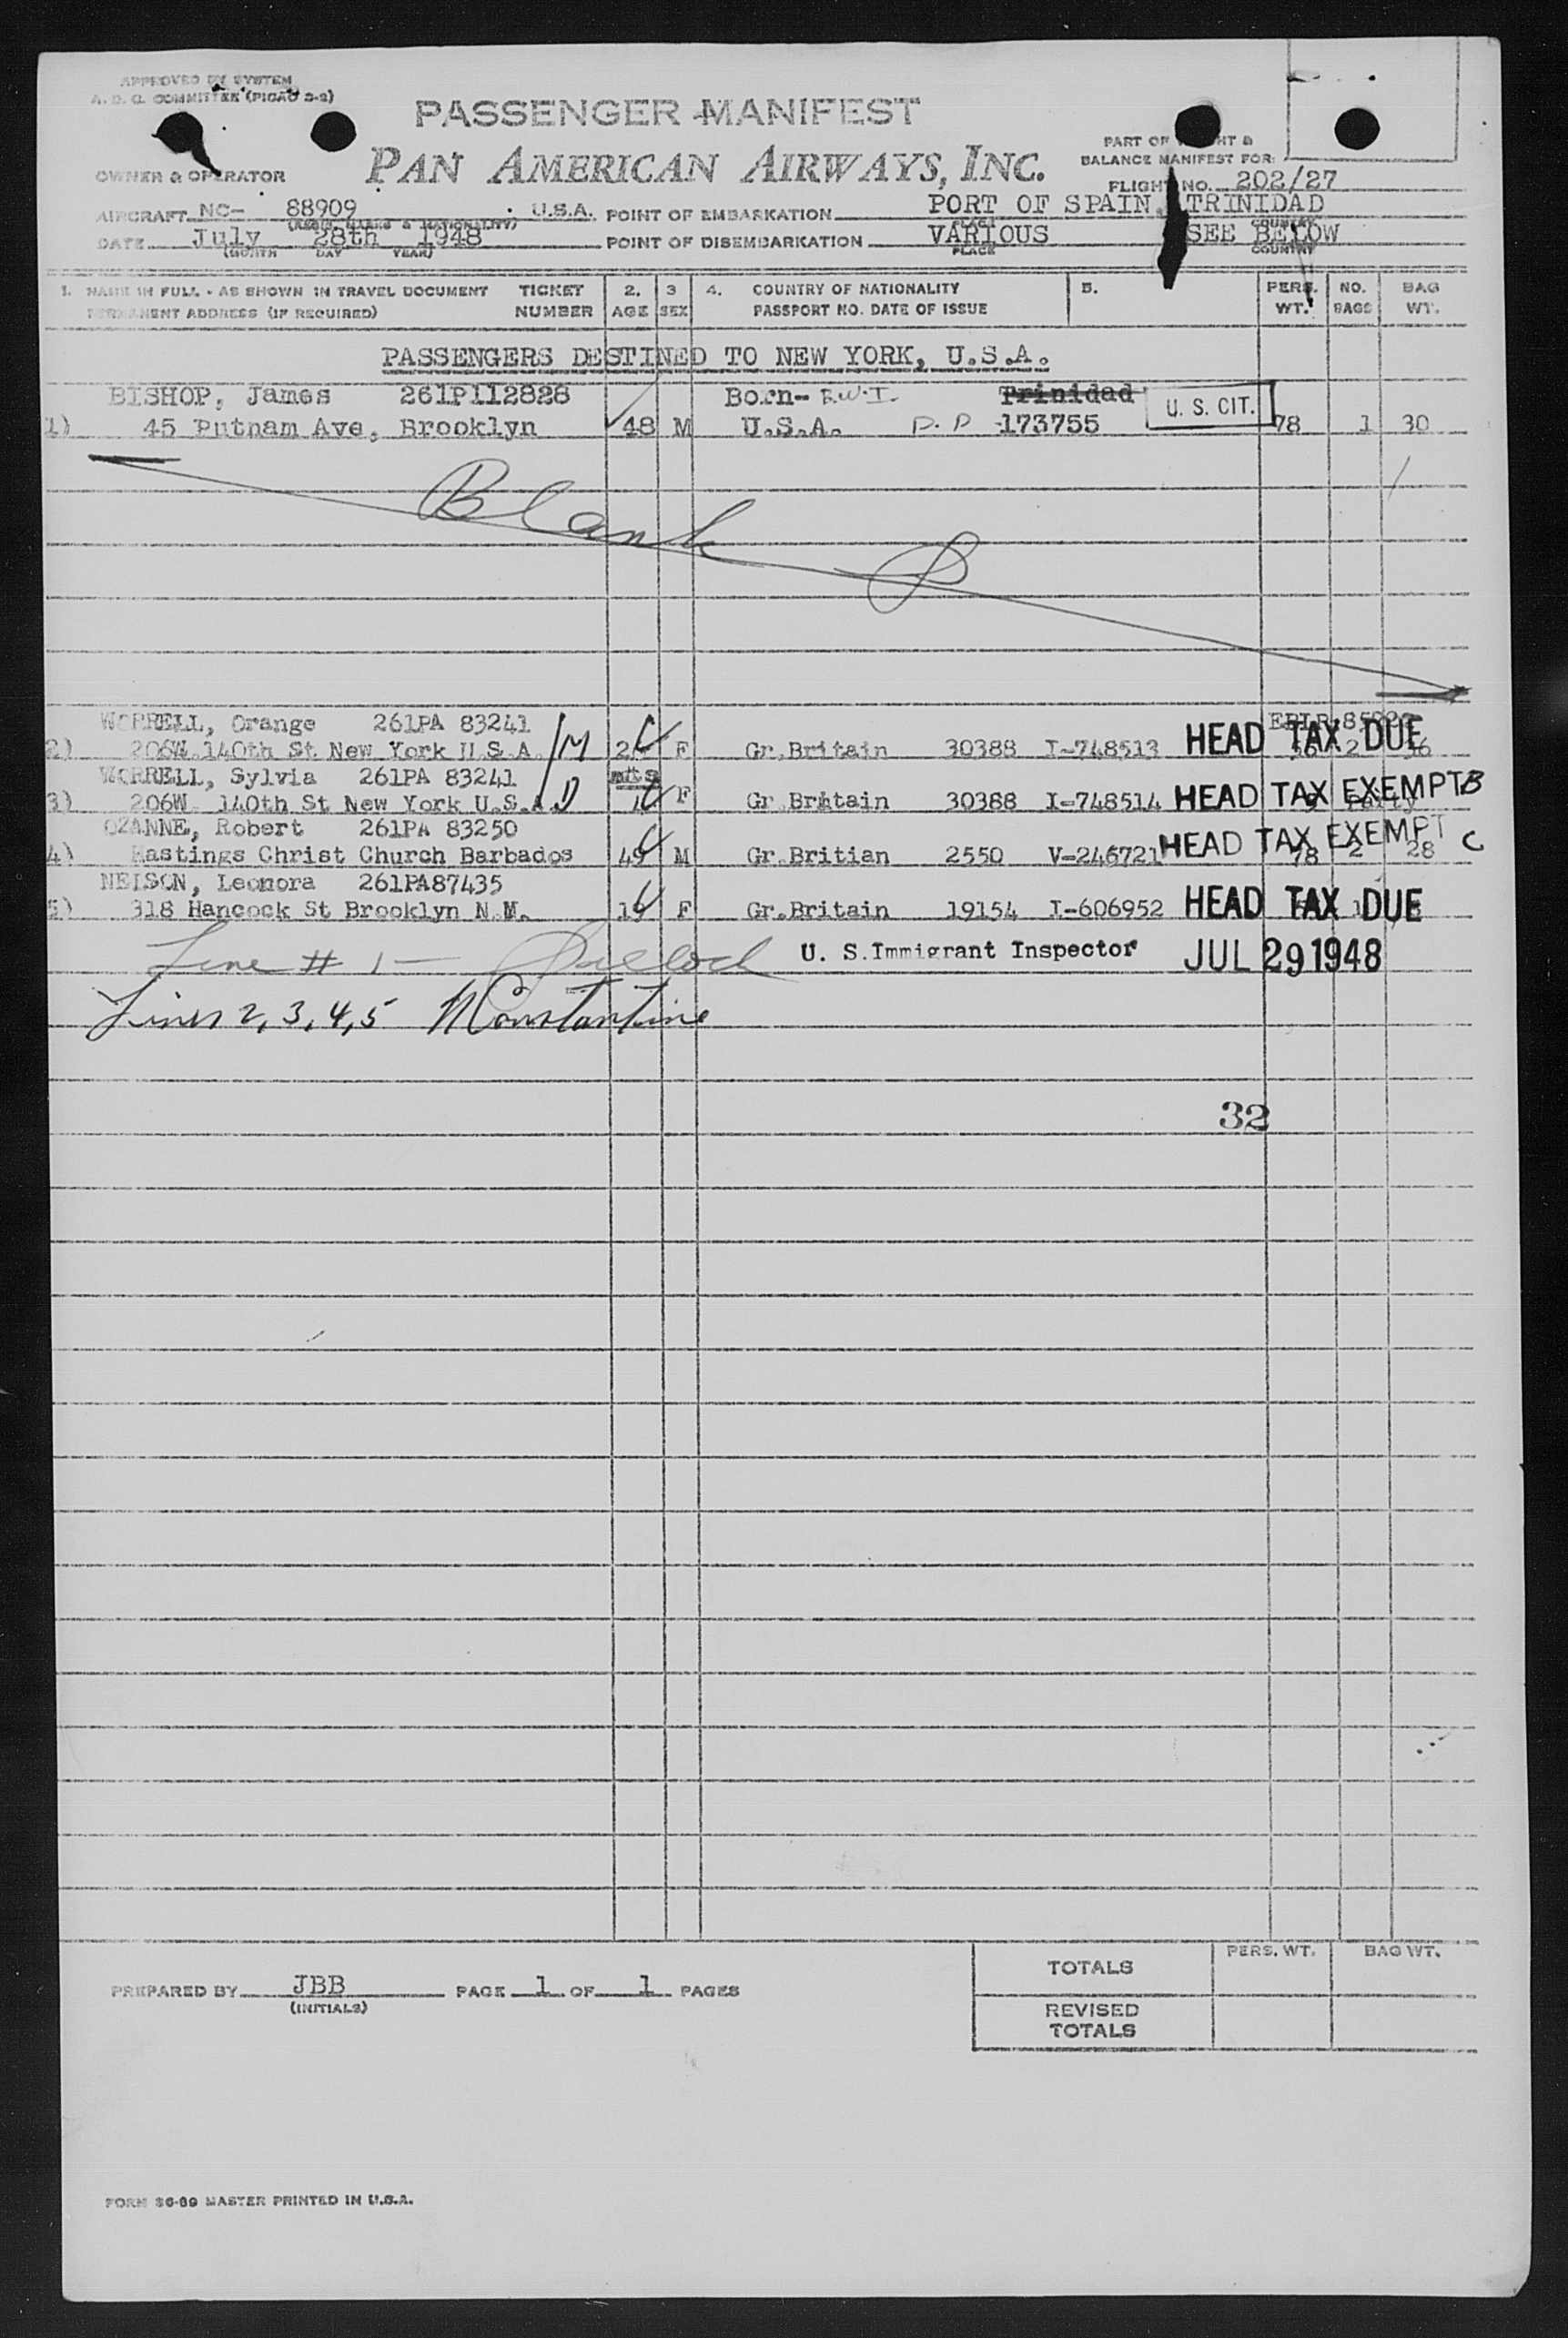 APPROVED BY SYSTEM
A. D. C. COMMITTEE (PICAO 2-2)
PASSENGER MANIFEST
PAN AMERICAN AIRWAYS, INC.
PART OF WEIGHT &
BALANCE MANIFEST FOR:
FLIGHT NO. 202/27
OWNER & OPERATOR
AIRCRAFT NC- 88909 U.S.A. POINT OF EMBARKATION PORT OF SPAIN, TRINIDAD
(REGIS. MARKS & NATIONALITY) PLACE COUNTRY
DATE July 28th 1948 POINT OF DISEMBARKATION VARIOUS SEE BELOW
(MONTH DAY YEAR) PLACE COUNTRY
1. NAME IN FULL - AS SHOWN IN TRAVEL DOCUMENT TICKET 2. 3 4. COUNTRY OF NATIONALITY 5. PERS. NO. BAG
PERMANENT ADDRESS (IF REQUIRED) NUMBER AGE SEX PASSPORT NO. DATE OF ISSUE WT. BAGS WT.
PASSENGERS DESTINED TO NEW YORK, U.S.A.
BISHOP, James 261P112828 Born- B.W.I. Trinidad U. S. CIT.
1) 45 Putnam Ave, Brooklyn 48 M U.S.A. P. P 173755 78 1 30
Blank
WORRELL, Orange 261PA 83241
2) 206W. 140th St New York U.S.A. M F Gr.Britain 30388 I-748513 HEAD TAX DUE 2
WORRELL, Sylvia 261PA 83241 mths
3) 206W 140th St New York U.S.A. D F Gr Britain 30388 I-748514 HEAD TAX EXEMPT B
OZANNE, Robert 261PA 83250
4) Hastings Christ Church Barbados 49 M Gr.Britian 2550 V-246721 HEAD TAX EXEMPT C 78 2 28
NEISON, Leonora 261PA87435
5) 318 Hancock St Brooklyn N.M. F Gr.Britain 19154 I-606952 HEAD TAX DUE
Line # 1 - U. S. Immigrant Inspector JUL 29 1948
Lines 2, 3, 4, 5 M Constantine
32
PREPARED BY JBB PAGE 1 OF 1 PAGES
(INITIALS)
TOTALS PERS. WT. BAG WT.
REVISED
TOTALS
FORM 36-89 MASTER PRINTED IN U.S.A.